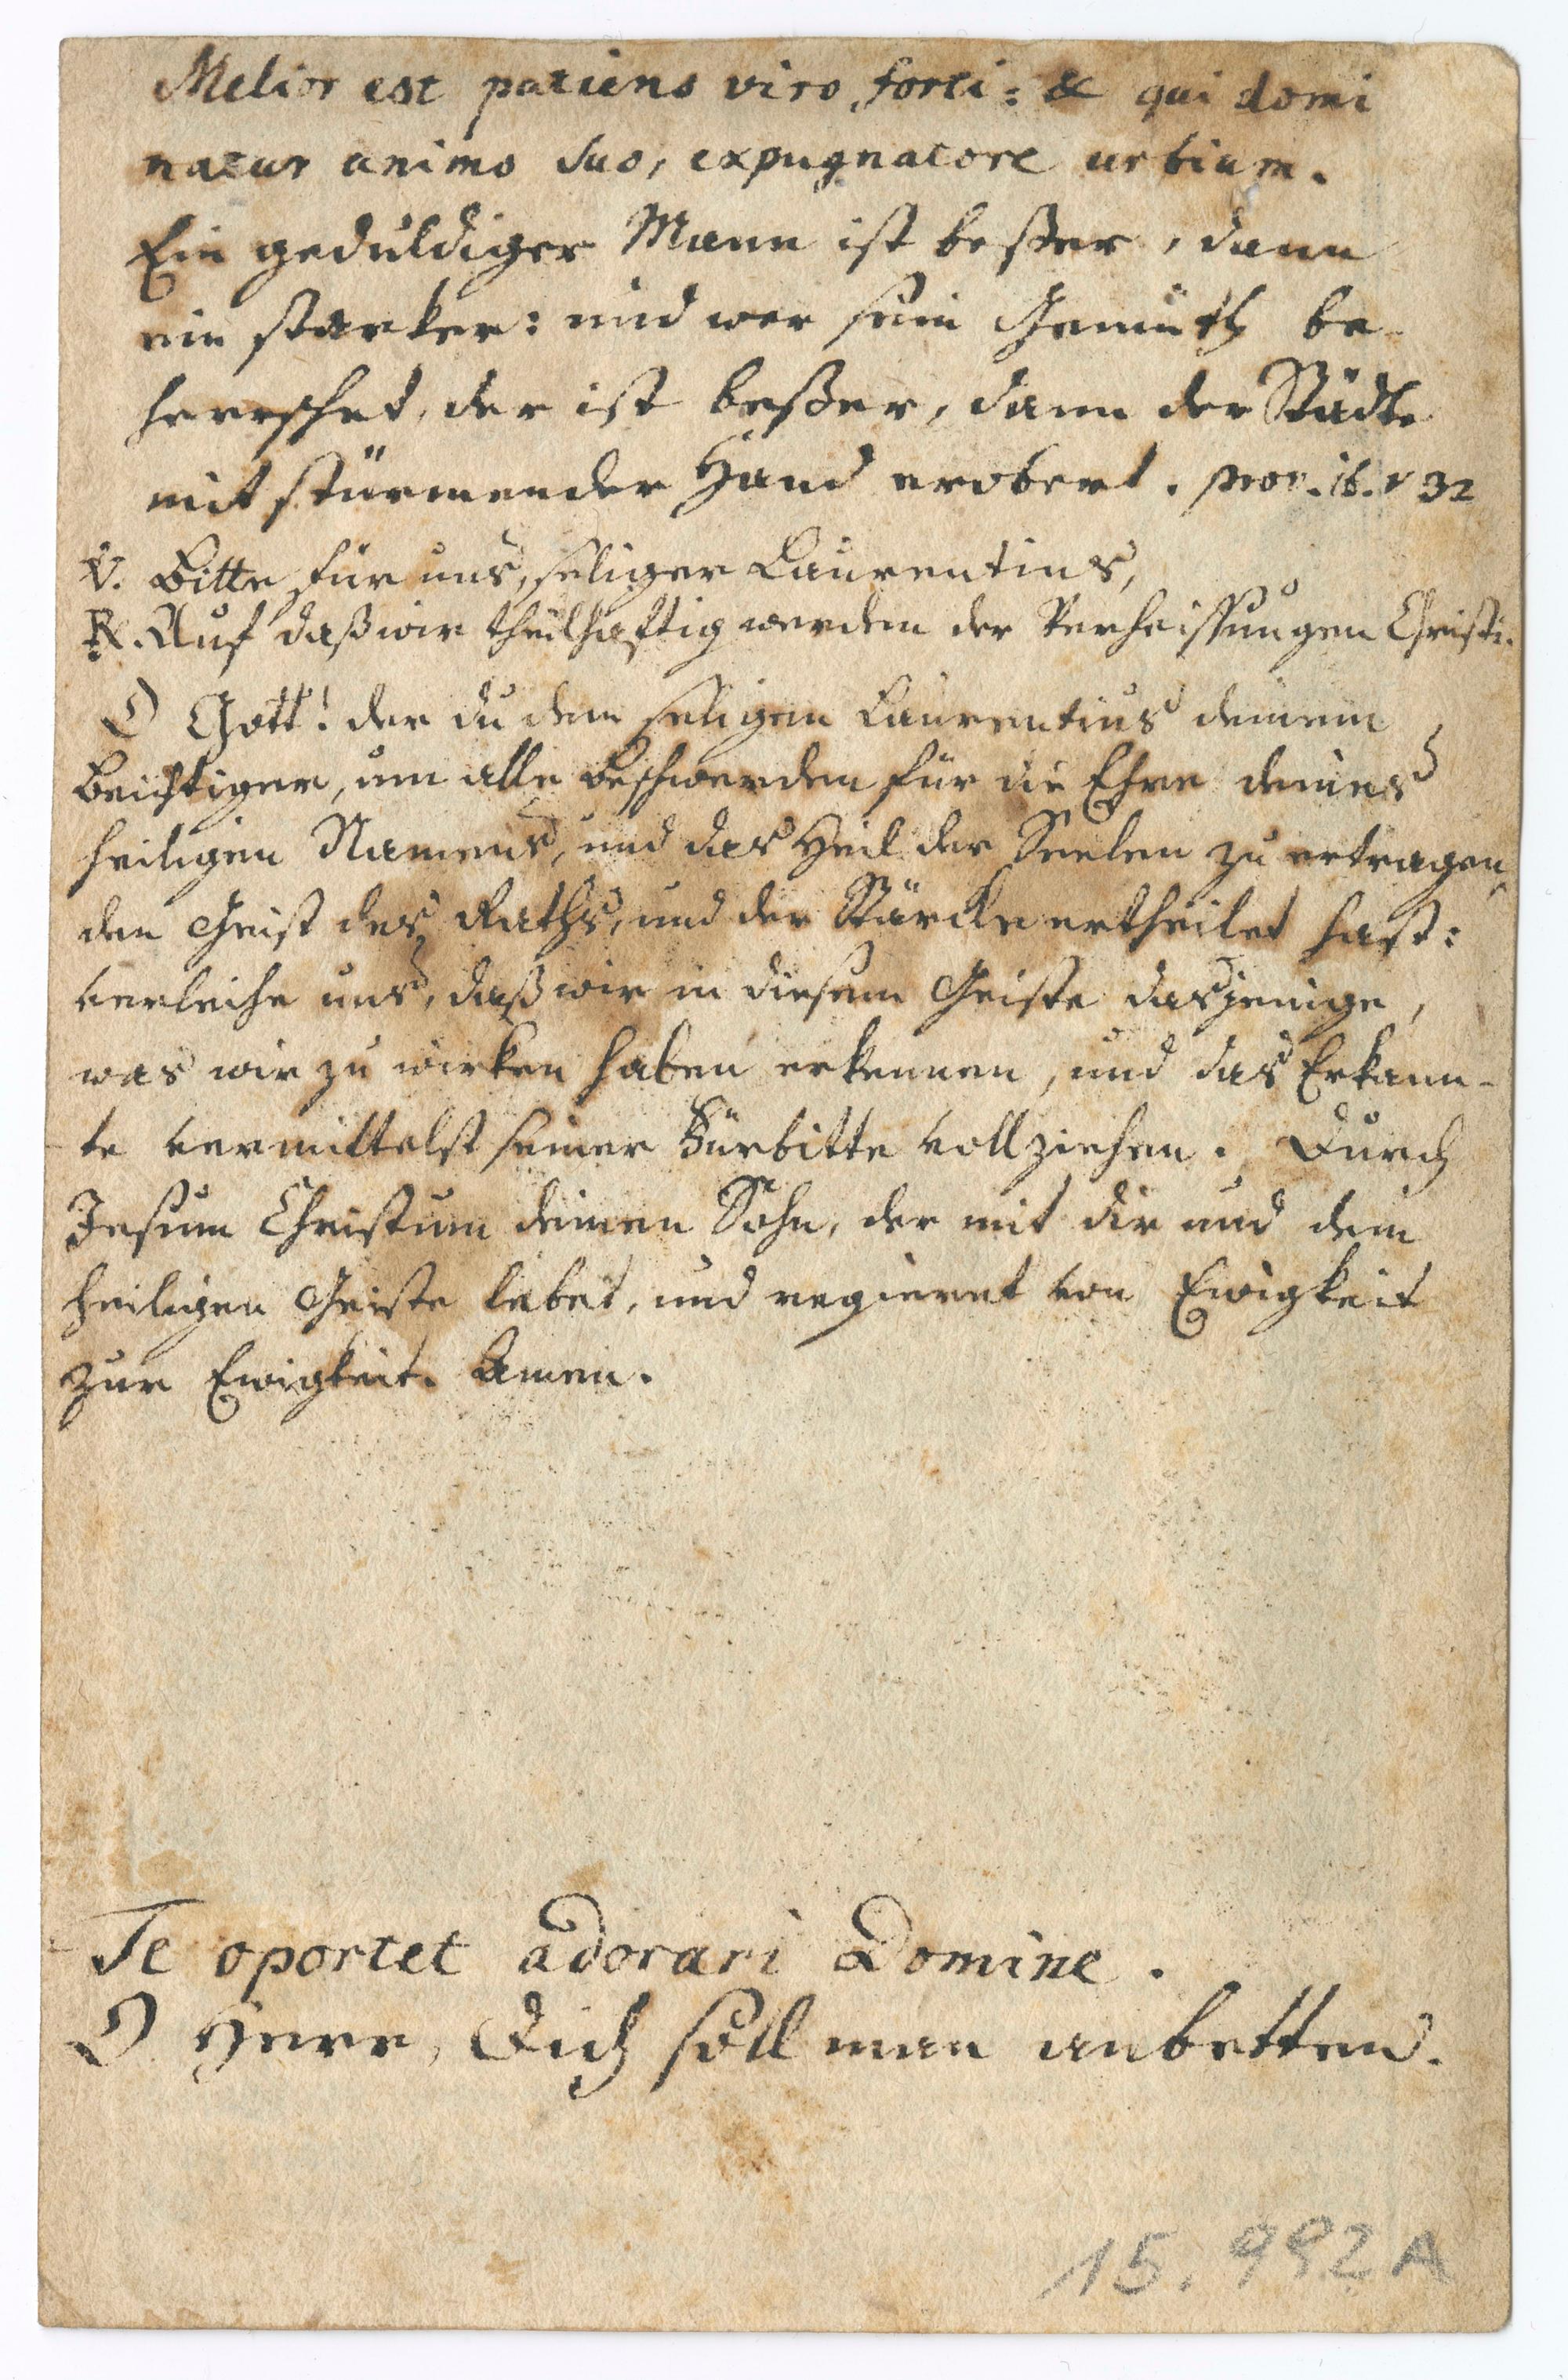 Melior est patiens viro forti: & qui domi
natur animo suo, expugnatore urbium.
Ein geduldiger Mann ist beßer, dann
ein starker: und wer sein Gemüth be-
herrschet, der ist beßer, dann der Städte
mit stürmender Hand erobert. prov. 16. v 32
V. Bitte für uns, seliger Laurentius,
R. Auf daß wir theilhaftig werden der Verheissungen Christi.
O Gott! der du dem seligen Laurentius deinem
Beichtiger, um alle Beschwerden für die Ehre deines
heiligen Namens, und das Heil der Seelen zu ertragen,
den Geist des Raths, und der Stärcke ertheilet hast:
verleihe uns, daß wir in diesem Geiste dasjenige,
was wir zu wirken haben erkennen, und das Erkann-
te vermittelst seiner Fürbitte vollziehen. Durch
Jesum Christum deinen Sohn, der mit dir und dem
heiligen Geiste lebet, und regieret von Ewigkeit
zur Ewigkeit. Amen.
Te oportet adorari Domine.
O Herr, Dich soll man anbetten.
15.992A